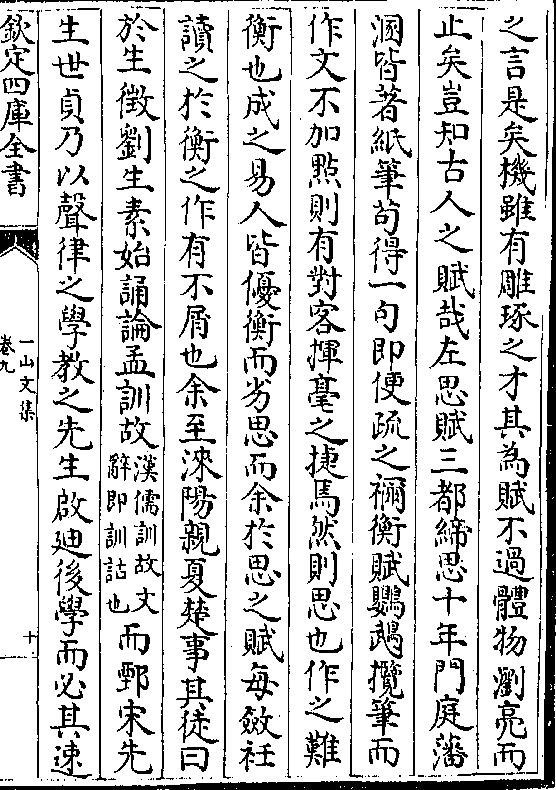 之言是矣機雖有雕琢之才其為賦不過體物瀏亮而
止矣豈知古人之賦哉左思賦三都締思十年門庭藩
溷皆著紙筆苟得一句即便疏之禰衡賦鸚鵡攬筆而
作文不加㸃則有對客揮毫之捷焉然則思也作之難
衡也成之易人皆優衡而劣思而余於思之賦每斂衽
讀之於衡之作有不屑也余至淶陽親夏楚事其徒曰
於生徵劉生素始誦論孟訓故漢儒訓故文辭即訓詁也而鄄宋先
生世貞乃以聲律之學教之先生啟廸後學而必其速
欽定四庫全書
一山文集
卷九
十